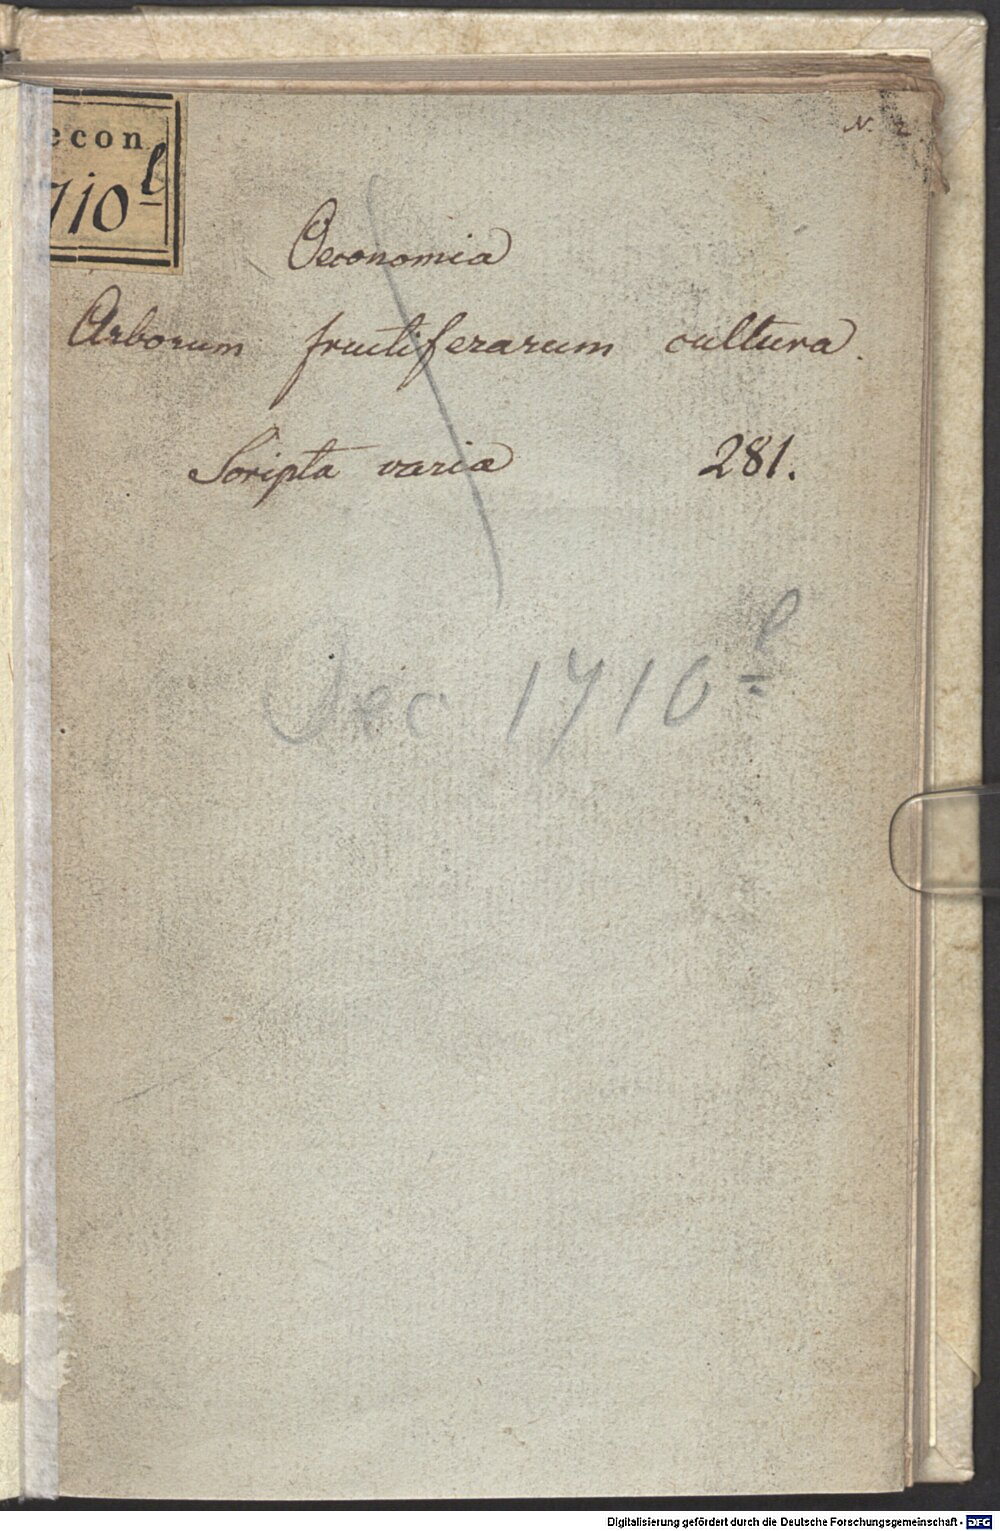 econ
710 l
N. 2
Oeconomia
Arborum fructiferarum cultura.
Scripta varia 281.
Oec 1710 l
Digitalisierung gefördert durch die Deutsche Forschungsgemeinschaft - DFG